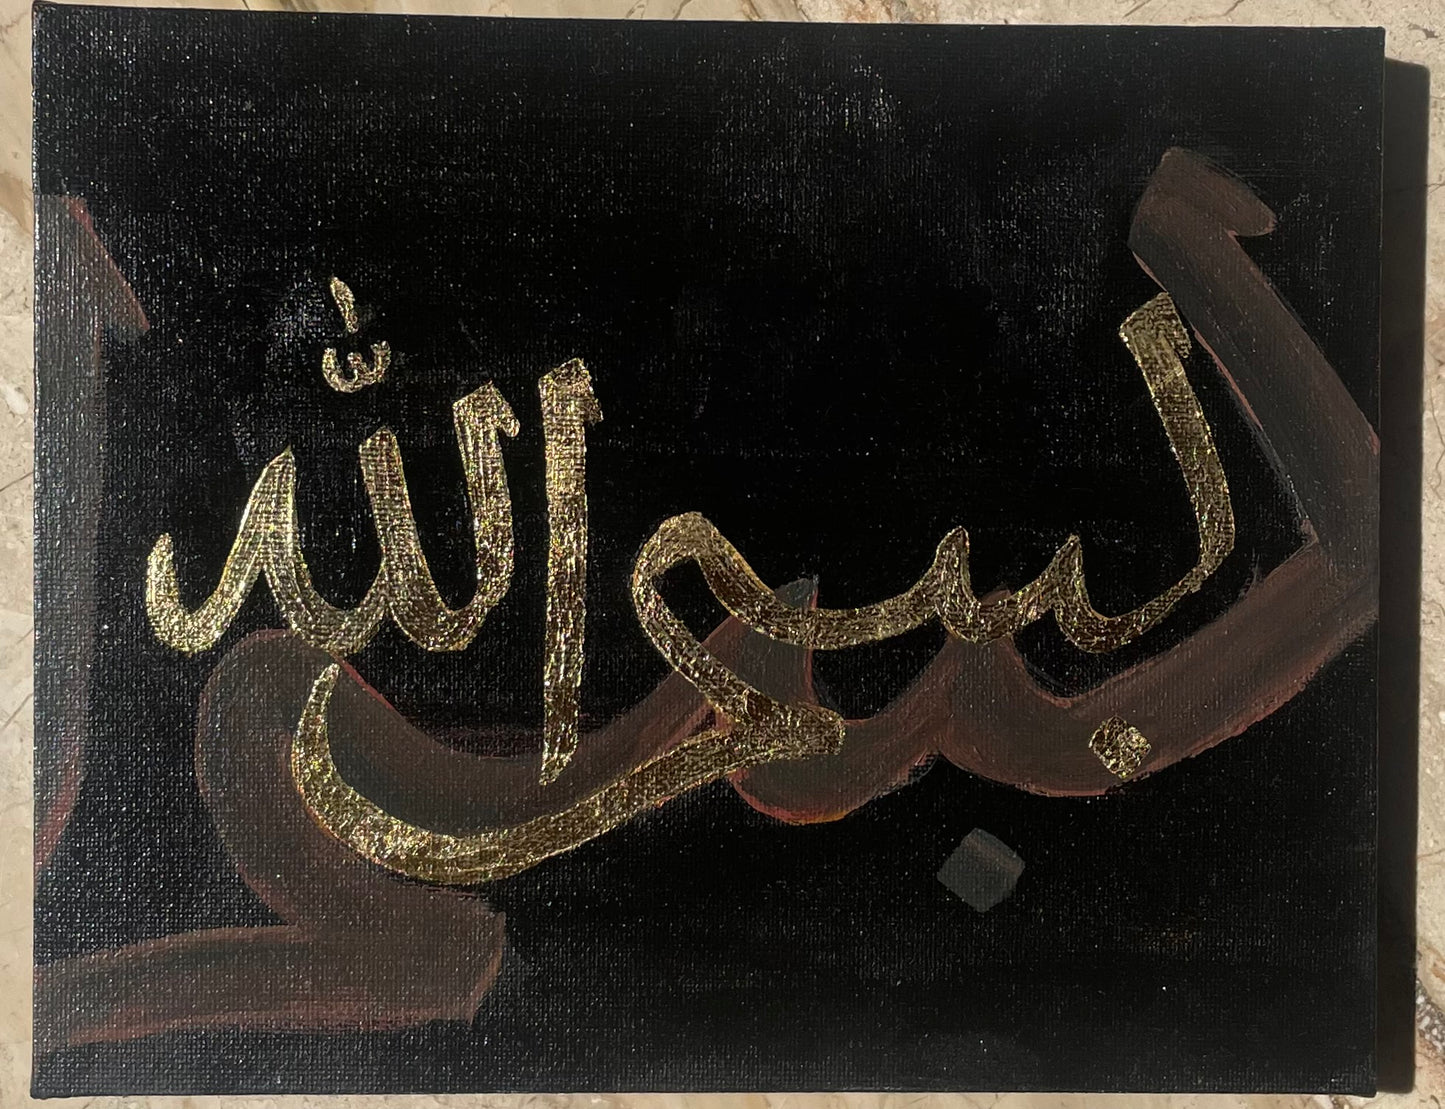 بسم اللّٰه